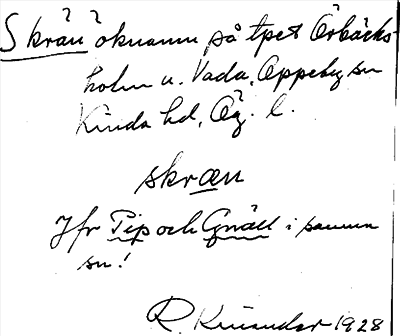 Skrän öknamn på tpet Örbäcks-
holm u. Vada, Oppeby sn
Kinda hd, Ög. l.
skræn
Jfr Pip och Gnäll i samma
sn!
R. Kinander 1928